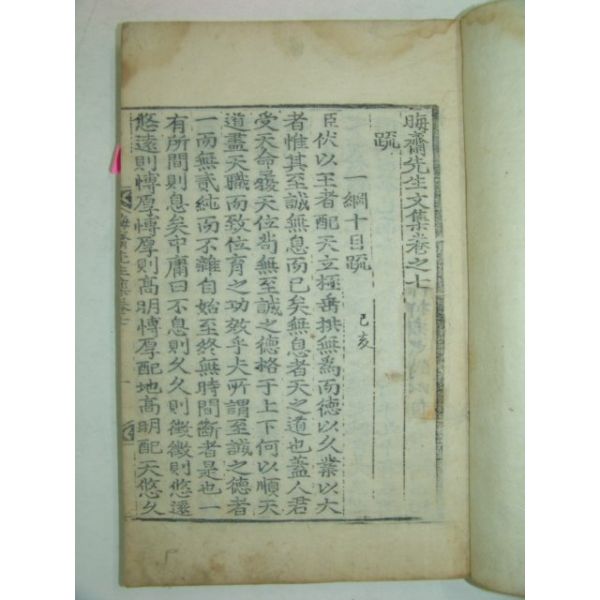 晦齋先生文集卷之七
疏
一綱十目疏 己亥
臣伏以王者配天立極垂拱無爲而德以久業以大
者惟其至誠無息而已矣無息者天之道也蓋人君
受天命履天位苟無至誠之德格于上下何以順天
道盡天職而致位育之功效乎夫所謂至誠之德者
一而無貳純而不雜自始至終無時間斷者是也一
有所間則息矣中庸曰不息則久久則徵徵則悠遠
悠遠則博厚博厚則高明博厚配地高明配天悠久
晦齋先生集卷七